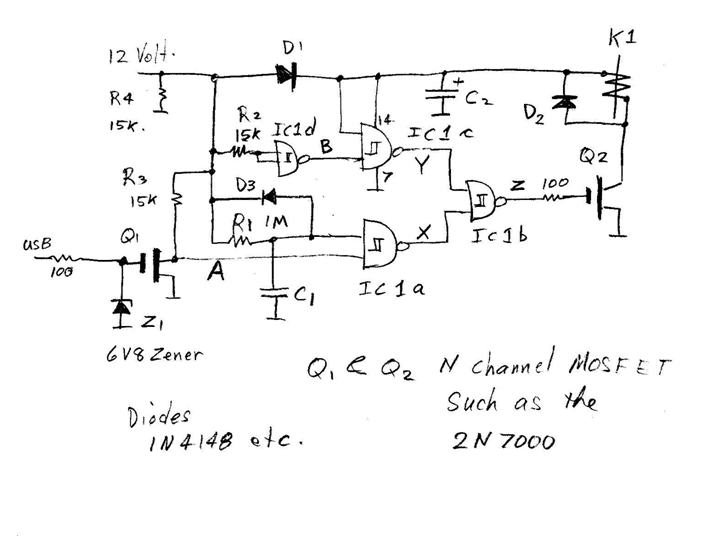 12 Volt.
D1
K1
R4
15K.
+
C2
D2
R2
15K
Ic1d
B
14
Ic1c
Y
7
Q2
R3
15K
D3
R1
1M
Z
100
Ic1b
X
Q1
USB
100
A
C1
Ic1a
Z1
6V8 Zener
Q1 & Q2 N channel MOSFET
Such as the
2N7000
Diodes
1N4148 etc.